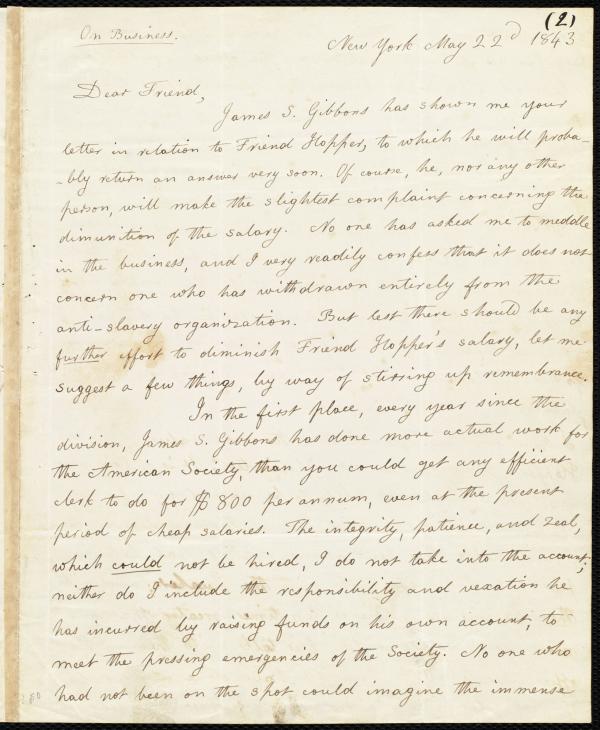 (2)
On Business.
New York May 22d 1843
Dear Friend,
James S. Gibbons has shown me your
letter in relation to Friend Hopper, to which he will proba-
-bly return an answer very soon. Of course, he, nor any other
person, will make the slightest complaint concerning the
dimunition of the salary. No one has asked me to meddle
in the business, and I very readily confess that it does not
concern one who has withdrawn entirely from the
anti-slavery organization. But lest there should be any
further effort to diminish Friend Hopper's salary, let me
suggest a few things, by way of stirring up remembrance.
In the first place, every year since the
division, James S. Gibbons has done more actual work for
the American Society, than you could get any efficient
clerk to do for $800 per annum, even at the present
period of cheap salaries. The integrity, patience, and zeal,
which could not be hired, I do not take into the account;
neither do I include the responsibility and vexation he
has incurred by raising funds on his own account, to
meet the pressing emergencies of the Society. No one who
had not been on the spot could imagine the immense